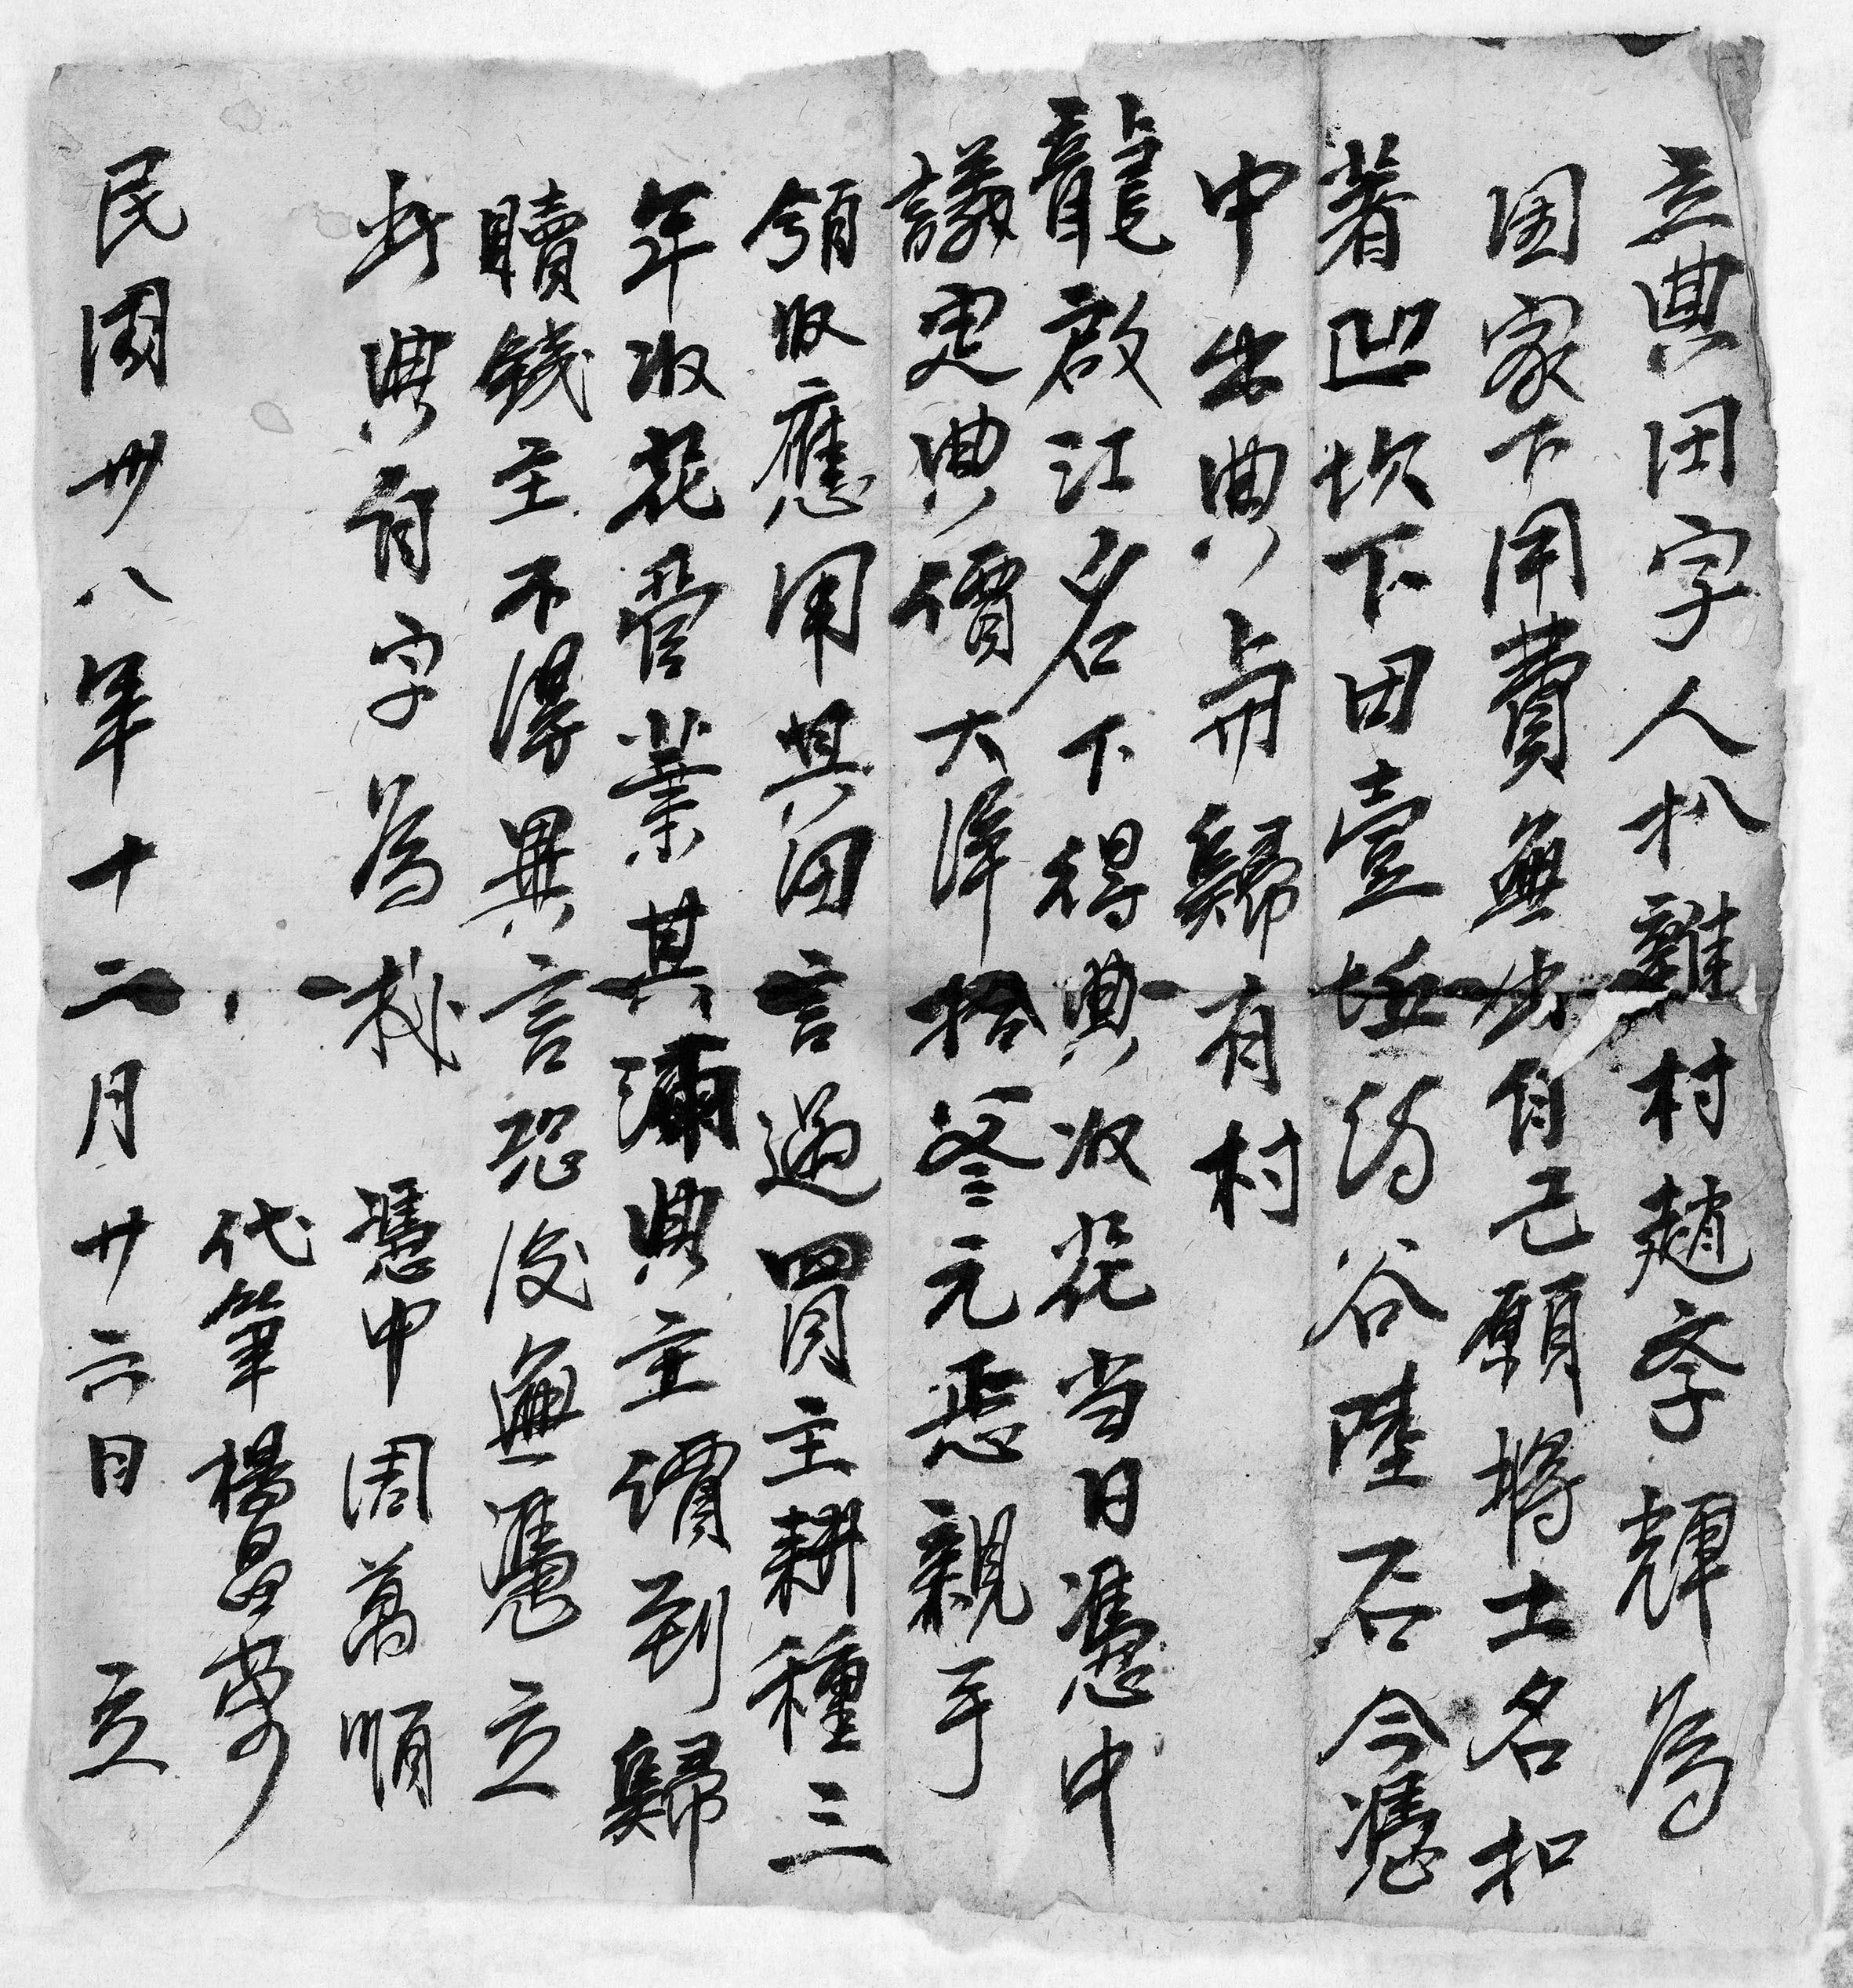 立典田字人扒難村趙孝輝為
因家下用費無出自己願將土名扣
著凹坎下田壹坵約谷陸石今憑
中出典與歸有村
龍啟江名下得典收花当日憑中
議定典價大洋拾叁元悉親手
領收應用其田言過買主耕種三
年收花管業其滿典主價到歸
贖錢主不得異言恐後無憑立
此典付字為
憑中周萬順
代筆楊昌
民國卅八年十二月廿六日立